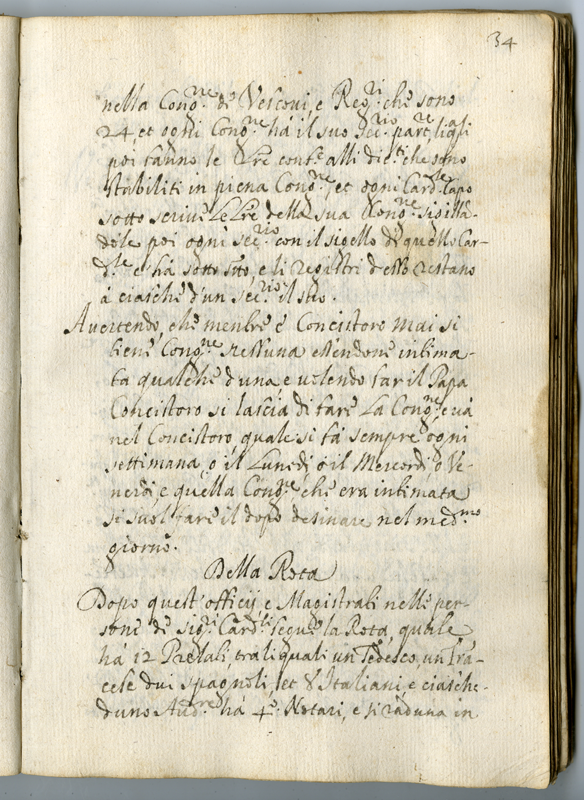 34
nella Cong.ne de Vescovi, e Reg.ri che sono
24, et ogni Cong.ne há il suo Sec.rio part.re li q.li
poi fanno le Lre conf.e alli dic.ti che sono
stabiliti in piena Cong.ne, et ogni Card.le Capo
sotto scrive Le Lre della sua Cong.ne sigilla-
dole poi ogni sec.rio con il sigello di quello Car-
d.le e há sotto s.tto, e li registri d'esso restano
á ciasche d'un Sec.rio il suo.
Avertendo, che mentre é Concistoro mai si
tiene Cong.ne nessuna essendone intima-
ta qualche d'una, e volendo far il Papa
Concistoro si lascia di fare La Cong.ne, e vá
nel Concistoro, quale si fá sempre ogni
settimana, o il Lunedi, ó il Mercordi, ó Ve-
nerdi, e quella Cong.ne che era intimata
si suol fare il dopo desinare nel med.mo
giorno.
Della Rota
Dopo quest'officij e Magistrati nelle per-
sone de sig.ri Card.li segue la Rota, quale
há 12 Prelati, trá li quali un Tedesco, un Frá-
cese dui spagnoli, et 8 Italiani, e ciasche-
duno Aud.re há 4.o Notari, e si raduna in